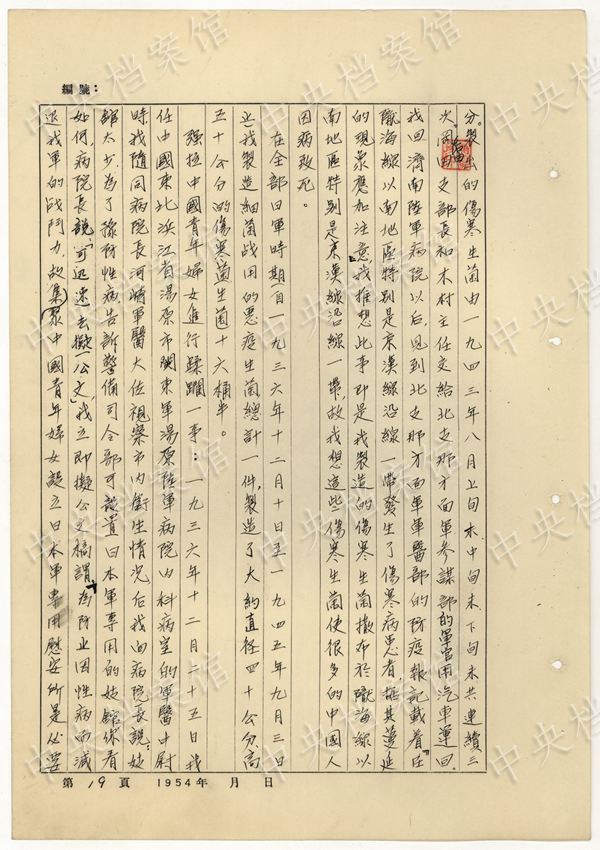 編號：
分。製出的傷寒生菌由一九四三年八月上旬末、中旬末、下旬末共連續三
次因四之部長和木村主任交給北支那方面軍參謀部的軍官用汽車運回。
我回濟南陸軍病院以后，回到北支那方面軍軍醫部的防疫報記載着在
隴海線以南地區特別是京漢線沿線一帶發生了傷寒病患者，據其蔓延
的現象應加注意。我推想此事即是我製造的傷寒生菌撒布於隴海線以
南地區特別是京漢線沿線一帶，故我想這些傷寒生菌使很多的中國人
因病致死。
在全部日軍時期自一九三六年十二月十日至一九四五年九月三日
止我製造細菌战用的惡疫生菌總計一件，製造了大約直徑四十公分高
五十公分的傷寒菌生菌十六桶半。
強拉中國青年婦女進行蹂躙一事：一九三六年十二月二十五日我
任中國東北浜江省湯原市関東軍湯原陸軍病院内科病室的軍醫中尉
時我隨同病院長河崎軍醫大佐視察市内衛生情况后我向病院長說：妓
館太少，為了預防性病告訴警備司令部可設置日本軍專用的妓館你看
如何，病院長說：可迅速去擬公文，我立即擬公文稿謂：為防止因性病而減
退我軍的战鬥力，故集聚中國青年婦女設立日本軍專用慰安所是必要
第19頁 1954年 月 日
中央档案馆